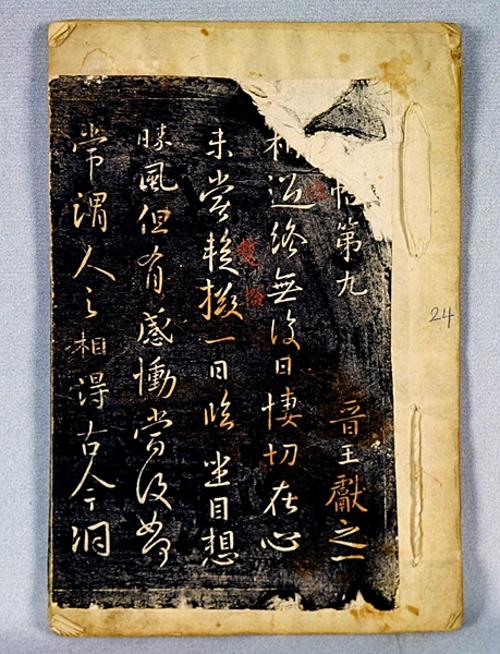 帖第九 晉王獻之一
相過終無復日悽切在心
未嘗暫撥一日臨坐目想
勝風但有感慟當復如何
常謂人之相得古今洞
暫
撥
24